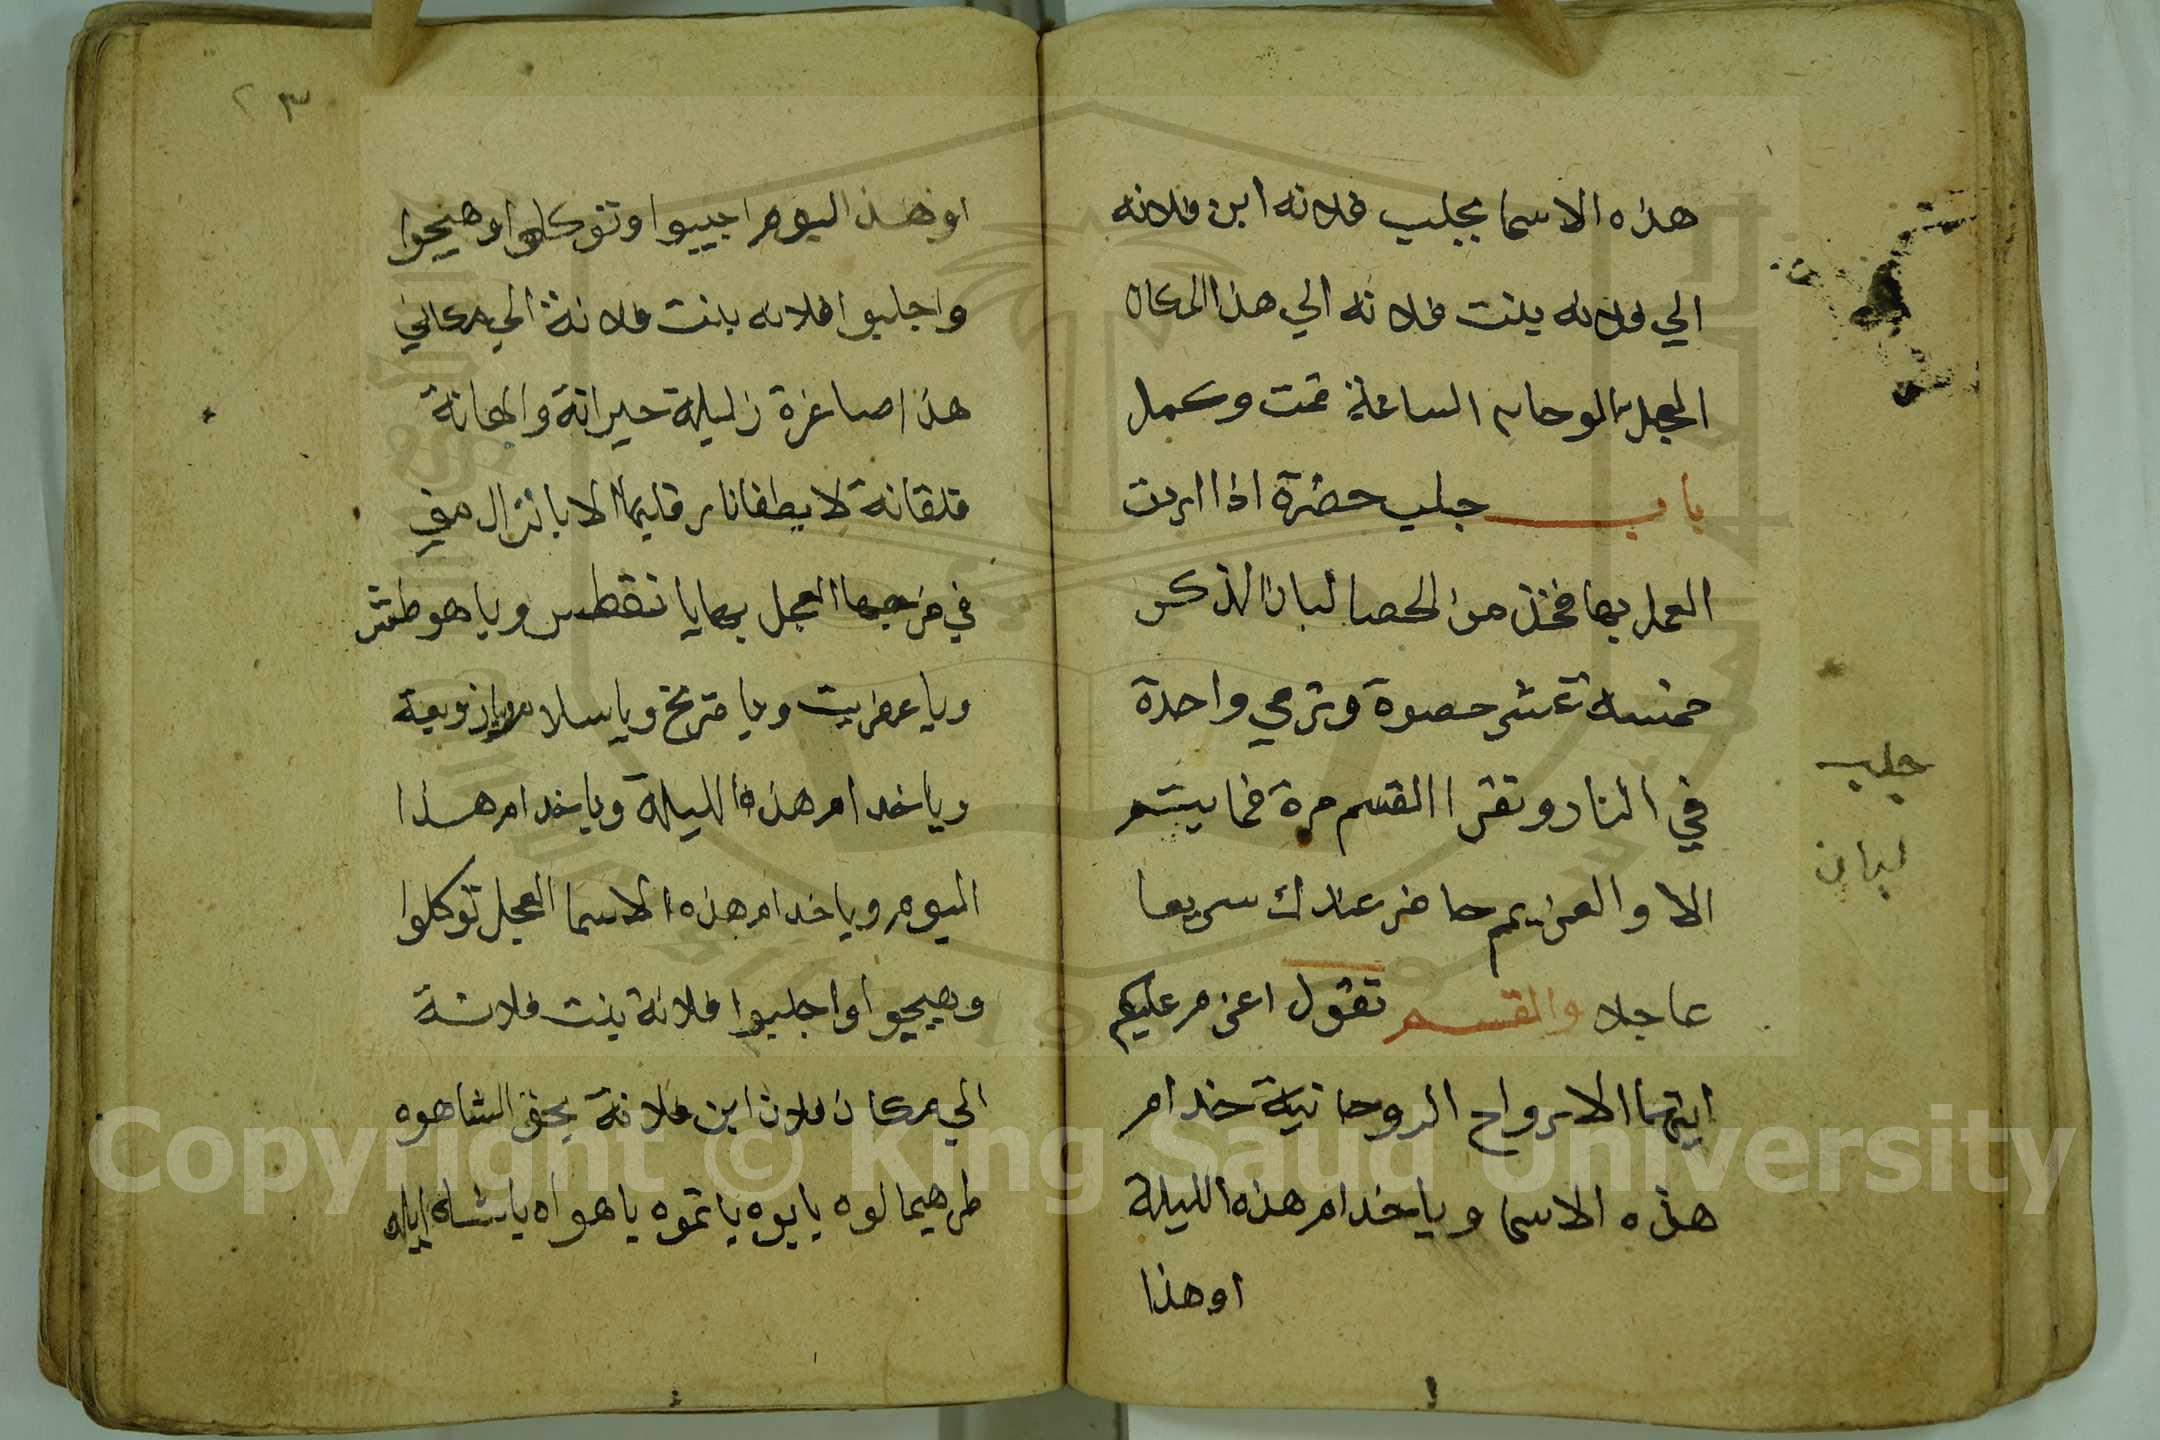 هذه الاسما بجلب فلانه ابن فلانه
الي فلانه بنت فلانه الي هذا المكان
العجل الوحا الساعة تمت وكمل
باب جلب حضرة اذا اردت
العمل بها فخذ من الحصا لبان الذكر
خمسة عشر حصوة وترمي واحدة
في النار وتقرا القسم مرة فما يتم
الا والغريم حاضر عندك سريعا
عاجلا والقسم تقول اعزم عليكم
ايتها الارواح الروحانية خدام
هذه الاسما ويا خدام هذه الليلة
اوهذا
جلب
لبان
٢٣
او هذا اليوم اجيبوا وتوكلوا وهيجوا
واجلبوا فلانه بنت فلانة الي مكاني
هذا صاغرة زليلة حيرانة والهانة
قلقانة لا يطفا نار قلبها الا بانزال مني
في فرجها العجل يا نقطس ويا هوطش
ويا عفريت ويا مريخ ويا زوبعة
ويا خدام هذه الليلة ويا خدام هذا
اليوم ويا خدام هذه الاسما العجل توكلوا
وهيجوا واجلبوا فلانة بنت فلانة
الي مكان فلان ابن فلانة بحق الشاهوه
طرهيما لوه يا يوه يا تموه يا هواه
Copyright © King Saud University